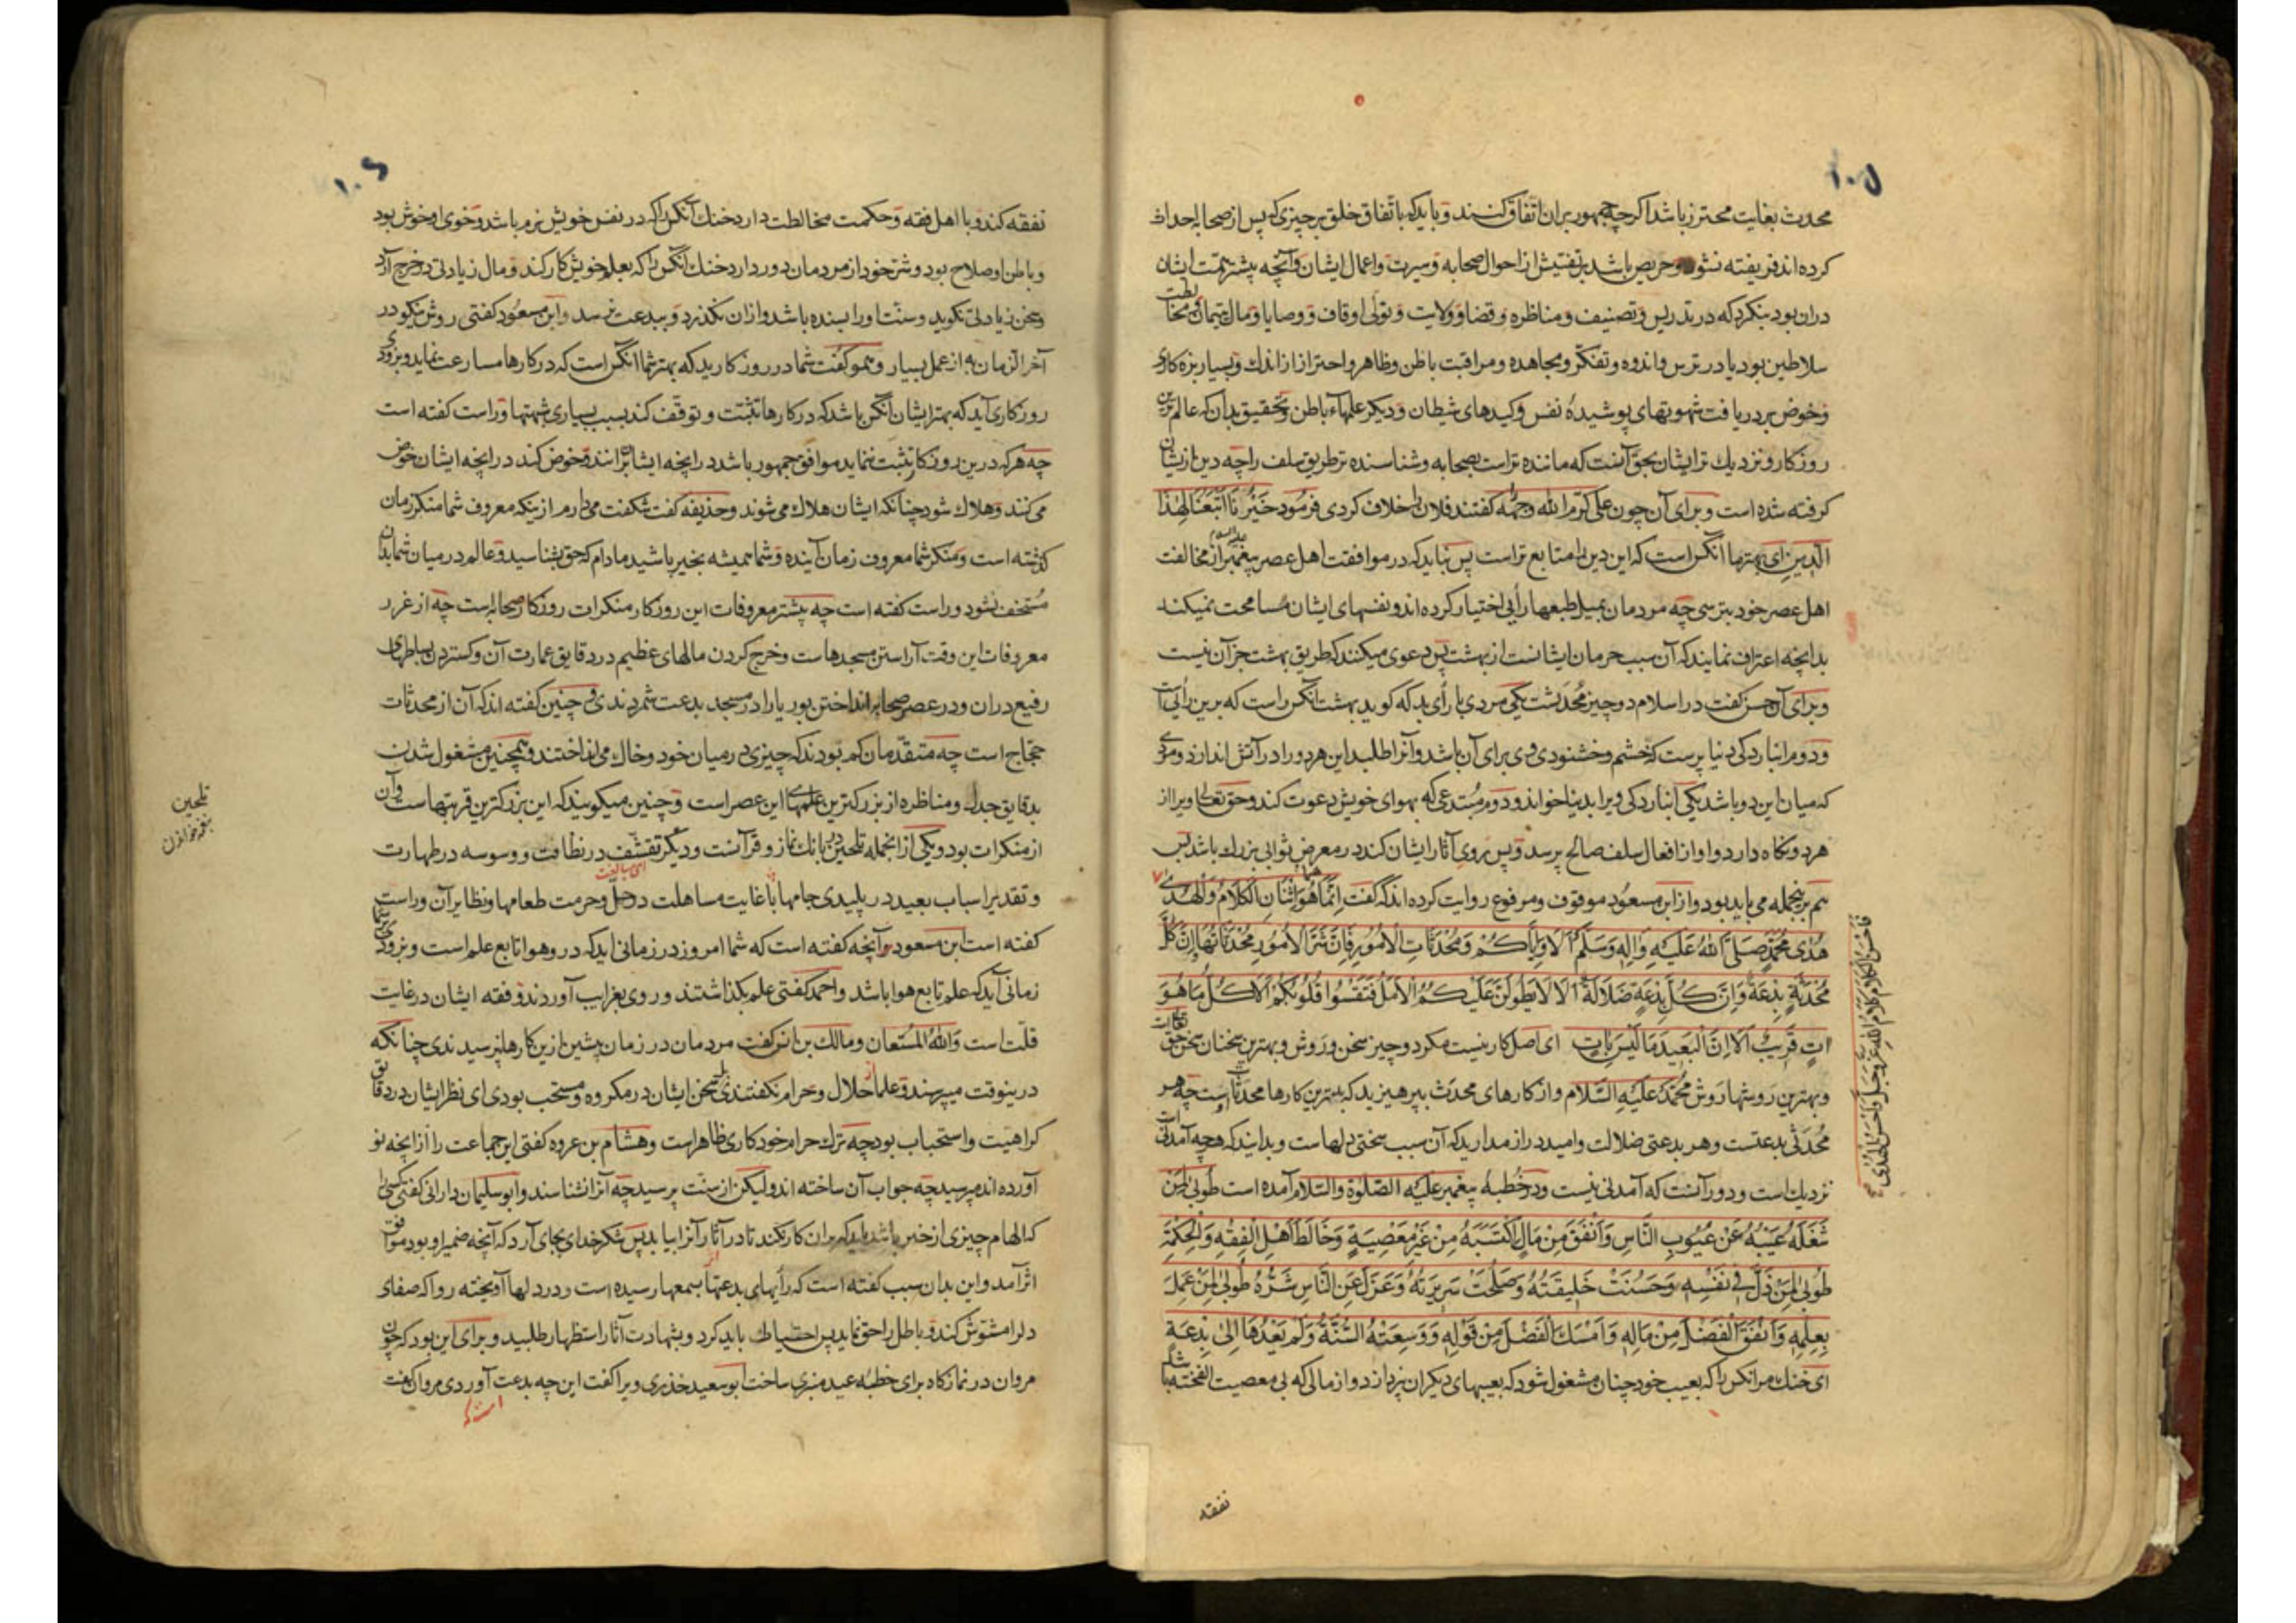 ۱۰۵
محدث بغایت محترز باشد اکرچه جمهور بران اتفاق کنند و باید که باتفاق خلق بر چیزی که پس از صحابه احداث
کرده اند فریفته نشود و حریص باشد بر تفتیش از احوال صحابه و سیرت و اعمال ایشان و آنچه بیشتر همت ایشان
دران بود بنکرد که در تدریس و تصنیف و مناظره و قضا و ولایت و تولی اوقاف و وصایا و مال یتیمان و مخالطت
سلاطین بود یا در ترس و اندوه و تفکر و مجاهده و مراقبت باطن و ظاهر و احتراز از اندک و بسیار بزه کاری
و خوض در دریافت شهوتهای پوشیدهٔ نفس و کیدهای شیطان و دیکر علمهاء باطن و بتحقیق بدان که عالم ترین
روزکار و نزدیک تر ایشان بحق آنست که ماننده تر است بصحابه و شناسنده تر طریق سلف را چه دین ازیشان
کرفته شده است و برای آن چون علی کرم الله وجهه کفتند فلان را خلاف کردی فرمود خَیْرُنَا اَتْبَعُنَا لِهٰذَا
الدِّینِ ای بهتر ما آنکس است که این دین را متابع تر است پس نباید که در موافقت اهل عصر پیغمبر علیه السلام از مخالفت
اهل عصر خود بترسی چه مردمان بمیل طبعها رأیی اختیار کرده اند و نفسهای ایشان مسامحت نمیکند
بدانچه اعتراف نمایند که آن سبب حرمان ایشانست از بهشت پس دعوی میکنند که طریق بهشت جز آن نیست
و برای آن حسن کفت در اسلام دو چیز محدثست یکی مردی با رأی بد که کوید بهشت آنکس راست که برین رأی است
و دوم انباردکی دنیا پرست که خشم و خشنودی وی برای آن باشد و آنرا طلبد این هر دو را در آتش اندازد و مردی
که میان این دو باشد یکی انباردکی ویرا بدنیا خواند و دوم مبتدعی که بهوای خویش دعوت کند و حق تعالی ویرا از
هر دو نکاه دارد و او از افعال سلف صالح پرسد و پس روی آثار ایشان کند در معرض ثوابی بزرک باشد پس
هم برینجمله می باید بود و از ابن مسعود موقوف و مرفوع روایت کرده اند که کفت اِنَّمَا هُوَ اثْنَانِ الْکَلَامُ وَالْهُدٰی
هُدٰی مُحَمَّدٍ صَلَّی اللهُ عَلَیْهِ وَاٰلِهِ وَسَلَّمَ اَلَا وَاِیَّاکُمْ وَمُحْدَثَاتِ الْاُمُورِ فَاِنَّ شَرَّ الْاُمُورِ مُحْدَثَاتُهَا اِنَّ کُلَّ
مُحْدَثَةٍ بِدْعَةٌ وَاِنَّ کُلَّ بِدْعَةٍ ضَلَالَةٌ اَلَا لَا یَطُولَنَّ عَلَیْکُمُ الْاَمَلُ فَتَقْسُوا قُلُوبُکُمْ اَلَا کُلُّ مَا هُوَ
اٰتٍ قَرِیْبٌ اَلَا اِنَّ الْبَعِیدَ مَا لَیْسَ بِاٰتٍ ای اصل کار نیست مکر دو چیز سخن و روش و بهترین سخنان سخن حق
و بهترین روشها روش محمد عَلَیْهِ السَّلَام و از کارهای محدث بپرهیزید که بدترین کارها محدثاتست چه هر
محدثی بدعتست و هر بدعتی ضلالت و امید دراز مدارید که آن سبب سختی دلهاست و بدانید که هرچه آمدنی
نزدیک است و دور آنست که آمدنی نیست و در خطبهٔ پیغمبر علیه الصلوة والسلام آمده است طُوبٰی لِمَنْ
شَغَلَهُ عَیْبُهُ عَنْ عُیُوبِ النَّاسِ وَاَنْفَقَ مِنْ مَالٍ اکْتَسَبَهُ مِنْ غَیْرِ مَعْصِیَةٍ وَخَالَطَ اَهْلَ الْفِقْهِ وَالْحِکْمَةِ
طُوبٰی لِمَنْ ذَلَّ فِی نَفْسِهِ وَحَسُنَتْ خَلِیقَتُهُ وَصَلَحَتْ سَرِیرَتُهُ وَعَزَلَ عَنِ النَّاسِ شَرَّهُ طُوبٰی لِمَنْ عَمِلَ
بِعِلْمِهِ وَاَنْفَقَ الْفَضْلَ مِنْ مَالِهِ وَاَمْسَکَ الْفَضْلَ مِنْ قَوْلِهِ وَوَسِعَتْهُ السُّنَّةُ وَلَمْ یَعْدُهَا اِلٰی بِدْعَةٍ
ای خنک مرانکس را که بعیب خود چنان مشغول شود که بعیبهای دیکران نپردازد و از مالی که بی معصیت الفخته باشد
فَاَحْسَنُ الْکَلَامِ کَلَامُ اللهِ عَزَّ وَجَلَّ وَاَحْسَنُ الْهُدٰی
نفقه
۱۰۶
نفقه کند و با اهل فقه و حکمت مخالطت دارد خنک آنکس را که در نفس خویش نرم باشد و خوی او خوش بود
و باطن او صلاح بود و شر خود از مردمان دور دارد خنک آنکس را که بعلم خویش کار کند و مال زیادتی در خرج آرد
و سخن زیادتی نکوید و سنت او را بسنده باشد و ازان نکذرد و ببدعت نرسد و ابن مسعود کفتی روش نیکو در
آخر الزمان به از عمل بسیار و همو کفت شما در روزکارید که بهتر شما آنکس است که در کارها مسارعت نماید و بزودی
روزکاری آید که بهتر ایشان آنکس باشد که در کارها تثبت و توقف کند بسبب بسیاری شبهتها و راست کفته است
چه هرکه درین روزکار تثبت ننماید موافق جمهور باشد در انچه ایشان برانند و خوض کند در انچه ایشان خوض
می کنند و هلاک شود چنانکه ایشان هلاک می شوند و حذیفه کفت شکفت می دارم ازینکه معروف شما منکر زمان
کذشته است و منکر شما معروف زمان آینده و شما همیشه بخیر باشید مادام که حق بشناسید و عالم در میان شما بدان
مستخف نشود و راست کفته است چه بیشتر معروفات این روزکار منکرات روزکار صحابه است چه از غرر
معروفات این وقت آراستن مسجدهاست و خرج کردن مالهای عظیم در دقایق عمارت آن و کستردن بساطهای
رفیع دران و در عصر صحابه انداختن بوریا را در مسجد بدعت شمردندی و چنین کفته اند که آن از محدثات
حجاج است چه متقدمان کم بودند که چیزی در میان خود و خاک می انداختند و همچنین مشغول شدن
بدقایق جدل و مناظره از بزرکترین علمهای این عصر است و چنین میکویند که این بزرکترین قربتهاست و آن
از منکرات بود و یکی ازانجمله تلحین در بانک نماز و قرآنست و دیکر تقشف در نظافت و وسوسه در طهارت
و تقدیر اسباب بعید در پلیدی جامها با غایت مساهلت در حل و حرمت طعامها و نظایر آن و راست
کفته است ابن مسعود و آنچه کفته است که شما امروز در زمانی اید که درو هوا تابع علم است و بزودی بر شما
زمانی آید که علم تابع هوا باشد و احمد کفتی علم بکذاشتند و روی بغرایب آوردند و فقه ایشان در غایت
قلت است وَاللهُ الْمُسْتَعَان و مالک بن انس کفت مردمان در زمان پیشین ازین کارها نپرسیدندی چنانکه
درینوقت میپرسند و علما حلال و حرام نکفتندی سخن ایشان در مکروه و مستحب بودی ای نظر ایشان در دقایق
کراهیت و استحباب بود چه ترک حرام خود کاری ظاهر است و هشام بن عروه کفتی این جماعت را از انچه نو
آورده اند مپرسید چه جواب آن ساخته اند ولیکن از سنت پرسید چه آنرا نشناسند و ابو سلیمان دارانی کفتی کسی را
که الهام چیزی از خیر باشد باید که بران کار نکند تا در آثار آنرا بیابد پس شکر خدای بجای آرد که آنچه ضمیر او بود موافق
اثر آمد و این بدان سبب کفته است که رأیهای بدعتها بسمعها رسیده است و در دلها آویخته روا که صفای
دل را مشوش کند و باطل را حق نماید پس احتیاط باید کرد و بشهادت آثار استظهار طلبید و برای این بود که چون
مروان در نمازکاه برای خطبهٔ عید منبری ساخت ابو سعید خدری ویرا کفت این چه بدعت آوردی مروان کفت
تلحین
بنغمه خواندن